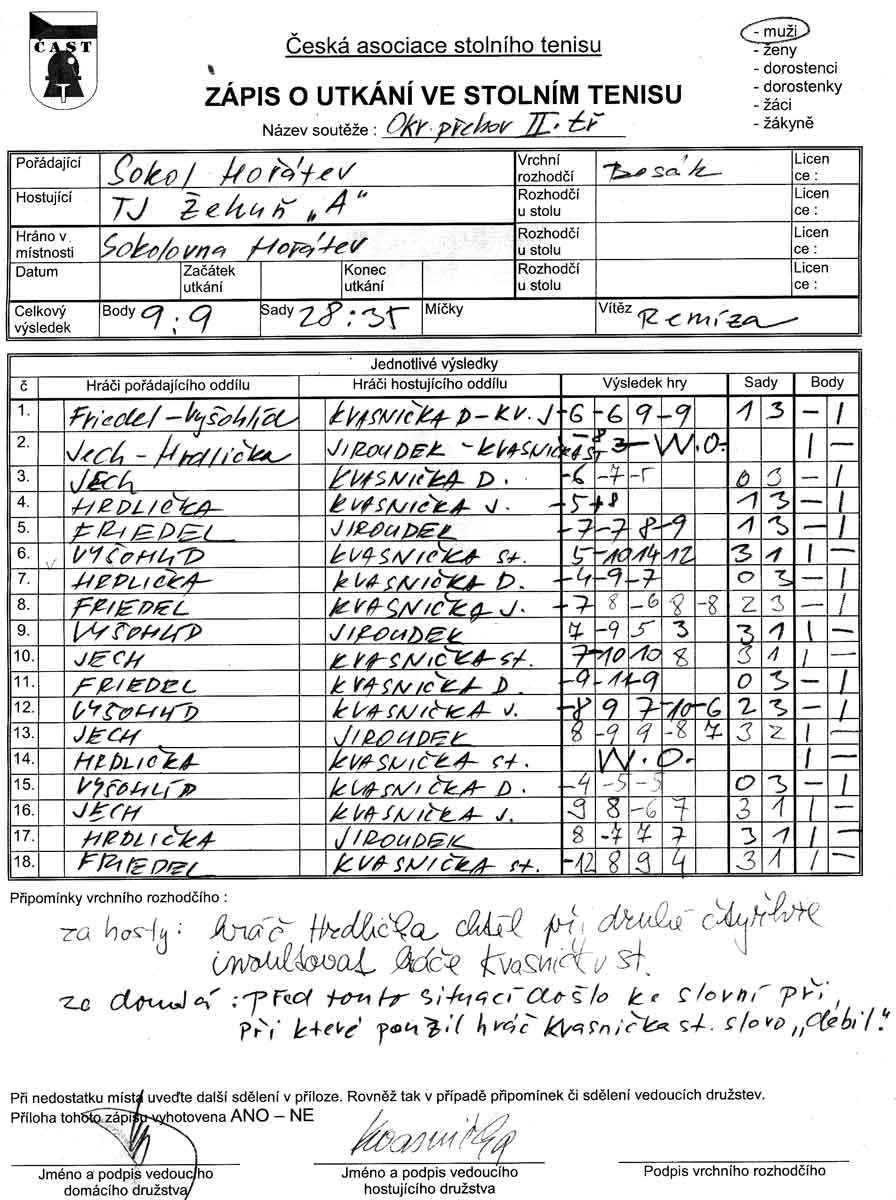 ČAST
Česká asociace stolního tenisu
- muži
- ženy
- dorostenci
- dorostenky
- žáci
- žákyně
ZÁPIS O UTKÁNÍ VE STOLNÍM TENISU
Název soutěže : Okr. přebor II. tř
Pořádající Sokol Hořátev Vrchní rozhodčí Bosák Licence :
Hostující TJ Žehuň „A“ Rozhodčí u stolu Licence :
Hráno v místnosti Sokolovna Hořátev Rozhodčí u stolu Licence :
Datum Začátek utkání Konec utkání Rozhodčí u stolu Licence :
Celkový výsledek Body 9:9 Sady 28:35 Míčky Vítěz Remíza
Jednotlivé výsledky
č Hráči pořádajícího oddílu Hráči hostujícího oddílu Výsledek hry Sady Body
1. Friedel - Vyšohlíd KVASNIČKA D - KV. J -6 -6 9 -9 1 3 - 1
2. Jech - Hrdlička JIROUDEK - KVASNIČKA ST -8 3 - W.O. 1 -
3. JECH KVASNIČKA D. -6 -7 -5 0 3 - 1
4. HRDLIČKA KVASNIČKA J. 1 3 - 1
5. FRIEDEL JIROUDEK -7 -7 8 -9 1 3 - 1
6. VYŠOHLÍD KVASNIČKA st. 5 -10 14 12 3 1 1 -
7. HRDLIČKA KVASNIČKA D. -4 -9 -7 0 3 - 1
8. FRIEDEL KVASNIČKA J. -7 8 -6 8 -8 2 3 - 1
9. VYŠOHLÍD JIROUDEK 7 -9 5 3 3 1 1 -
10. JECH KVASNIČKA st. 7 -10 10 8 3 1 1 -
11. FRIEDEL KVASNIČKA D. -9 -11 -9 0 3 - 1
12. VYŠOHLÍD KVASNIČKA J. -8 9 7 -10 -6 2 3 - 1
13. JECH JIROUDEK 8 -9 9 -8 7 3 2 1 -
14. HRDLIČKA KVASNIČKA st. W.O. 1 -
15. VYŠOHLÍD KVASNIČKA D. -4 -5 -5 0 3 - 1
16. JECH KVASNIČKA J. 9 8 -6 7 3 1 1 -
17. HRDLIČKA JIROUDEK 8 -7 7 7 3 1 1 -
18. FRIEDEL KVASNIČKA st. -12 8 9 4 3 1 1 -
Připomínky vrchního rozhodčího :
za hosty: hráč Hrdlička chtěl při druhé čtyřhře
inzultovat hráče Kvasničku st.
za domácí : Před touto situací došlo ke slovní při,
při které použil hráč Kvasnička st. slovo „debil“.
Při nedostatku místa uveďte další sdělení v příloze. Rovněž tak v případě připomínek či sdělení vedoucích družstev.
Příloha tohoto zápisu vyhotovena ANO – NE
Kvasnička
Jméno a podpis vedoucího domácího družstva
Jméno a podpis vedoucího hostujícího družstva
Podpis vrchního rozhodčího